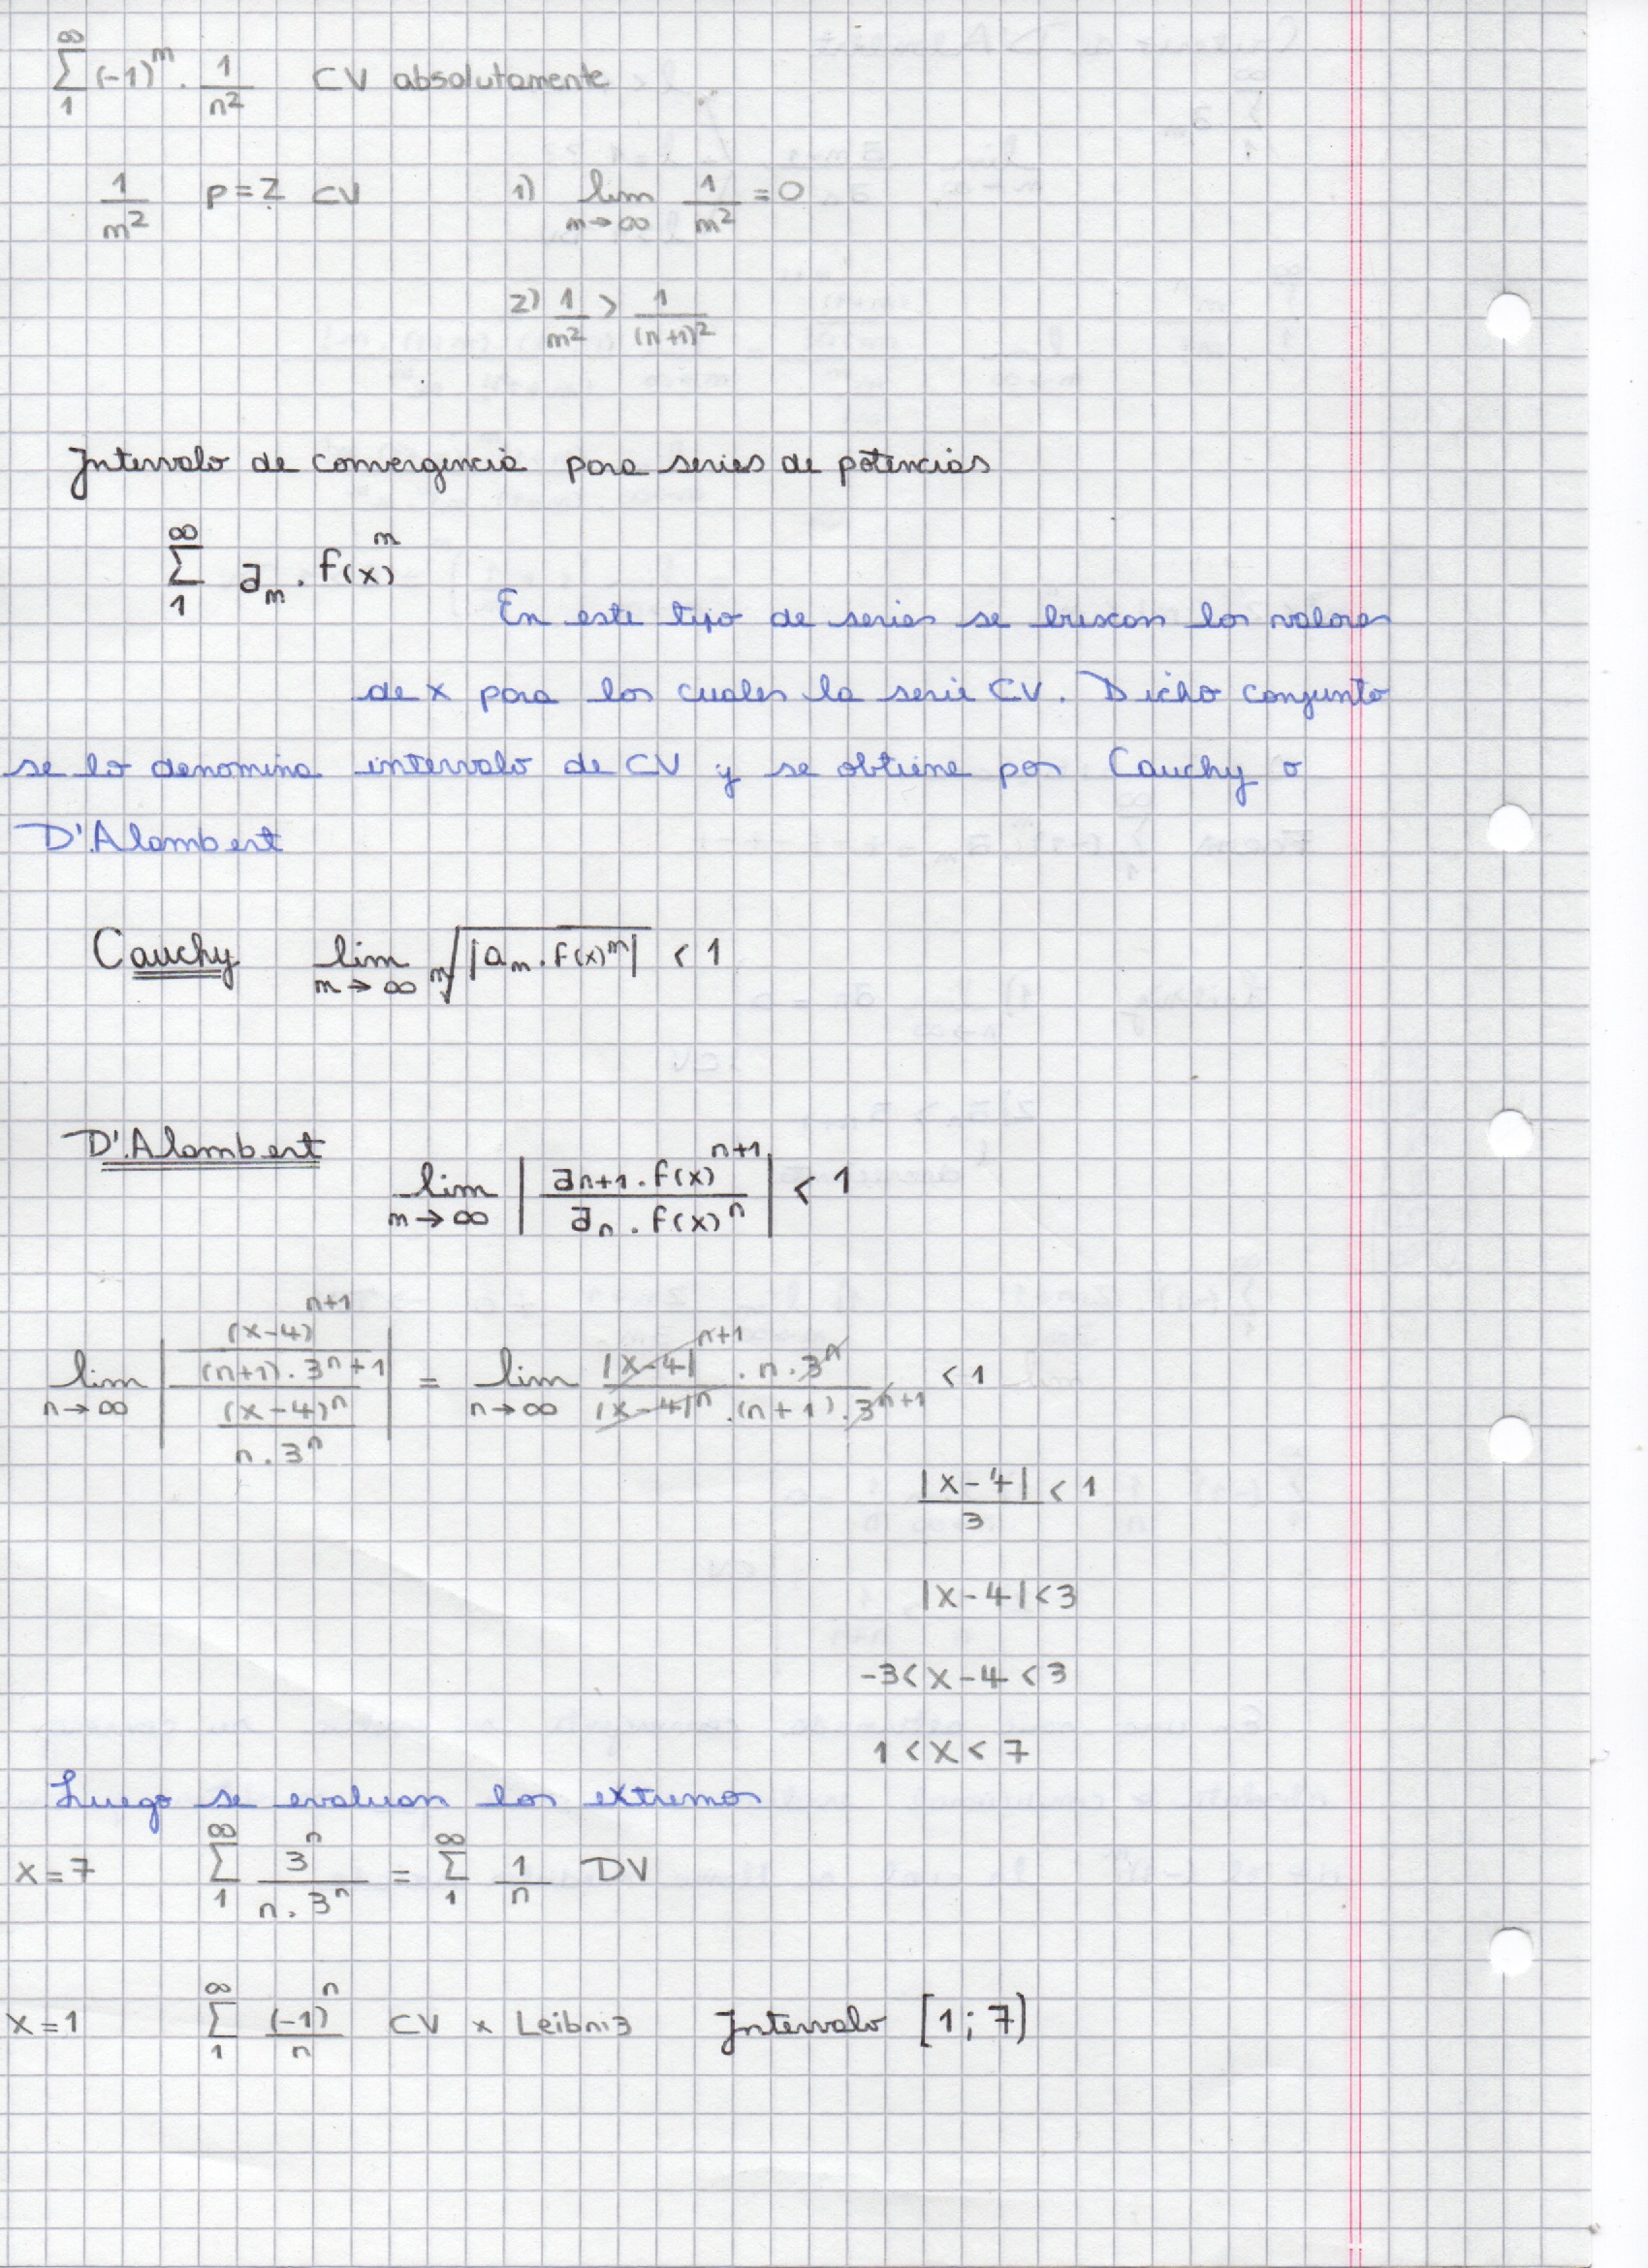 ∞
Σ (-1)^m . 1/n²   CV absolutamente
1
1/m²   p=2   CV   1) lim m→∞ 1/m² = 0
2) 1/m² > 1/(n+1)²
Intervalo de convergencia para series de potencias
∞
Σ a_m . f(x)^m
1
En este tipo de series se buscan los valores
de x para los cuales la serie CV. Dicho conjunto
se lo denomina intervalo de CV y se obtiene por Cauchy o
D'Alambert
Cauchy   lim m→∞ ᵐ√|a_m . f(x)^m| < 1
D'Alambert   lim m→∞ | a_n+1 . f(x)^n+1 / a_n . f(x)^n | < 1
lim n→∞ | (x-4)^n+1 / (n+1) . 3^n+1 / (x-4)^n / n . 3^n | = lim n→∞ |x-4|^n+1 . n . 3^n / |x-4|^n . (n+1) . 3^n+1 < 1
|x-4| / 3 < 1
|x-4| < 3
-3 < x-4 < 3
1 < x < 7
Luego se evaluan los extremos
x=7   ∞ Σ 1   3^n / n . 3^n = ∞ Σ 1   1/n   DV
x=1   ∞ Σ 1   (-1)^n / n   CV x Leibniz   Intervalo [1; 7)